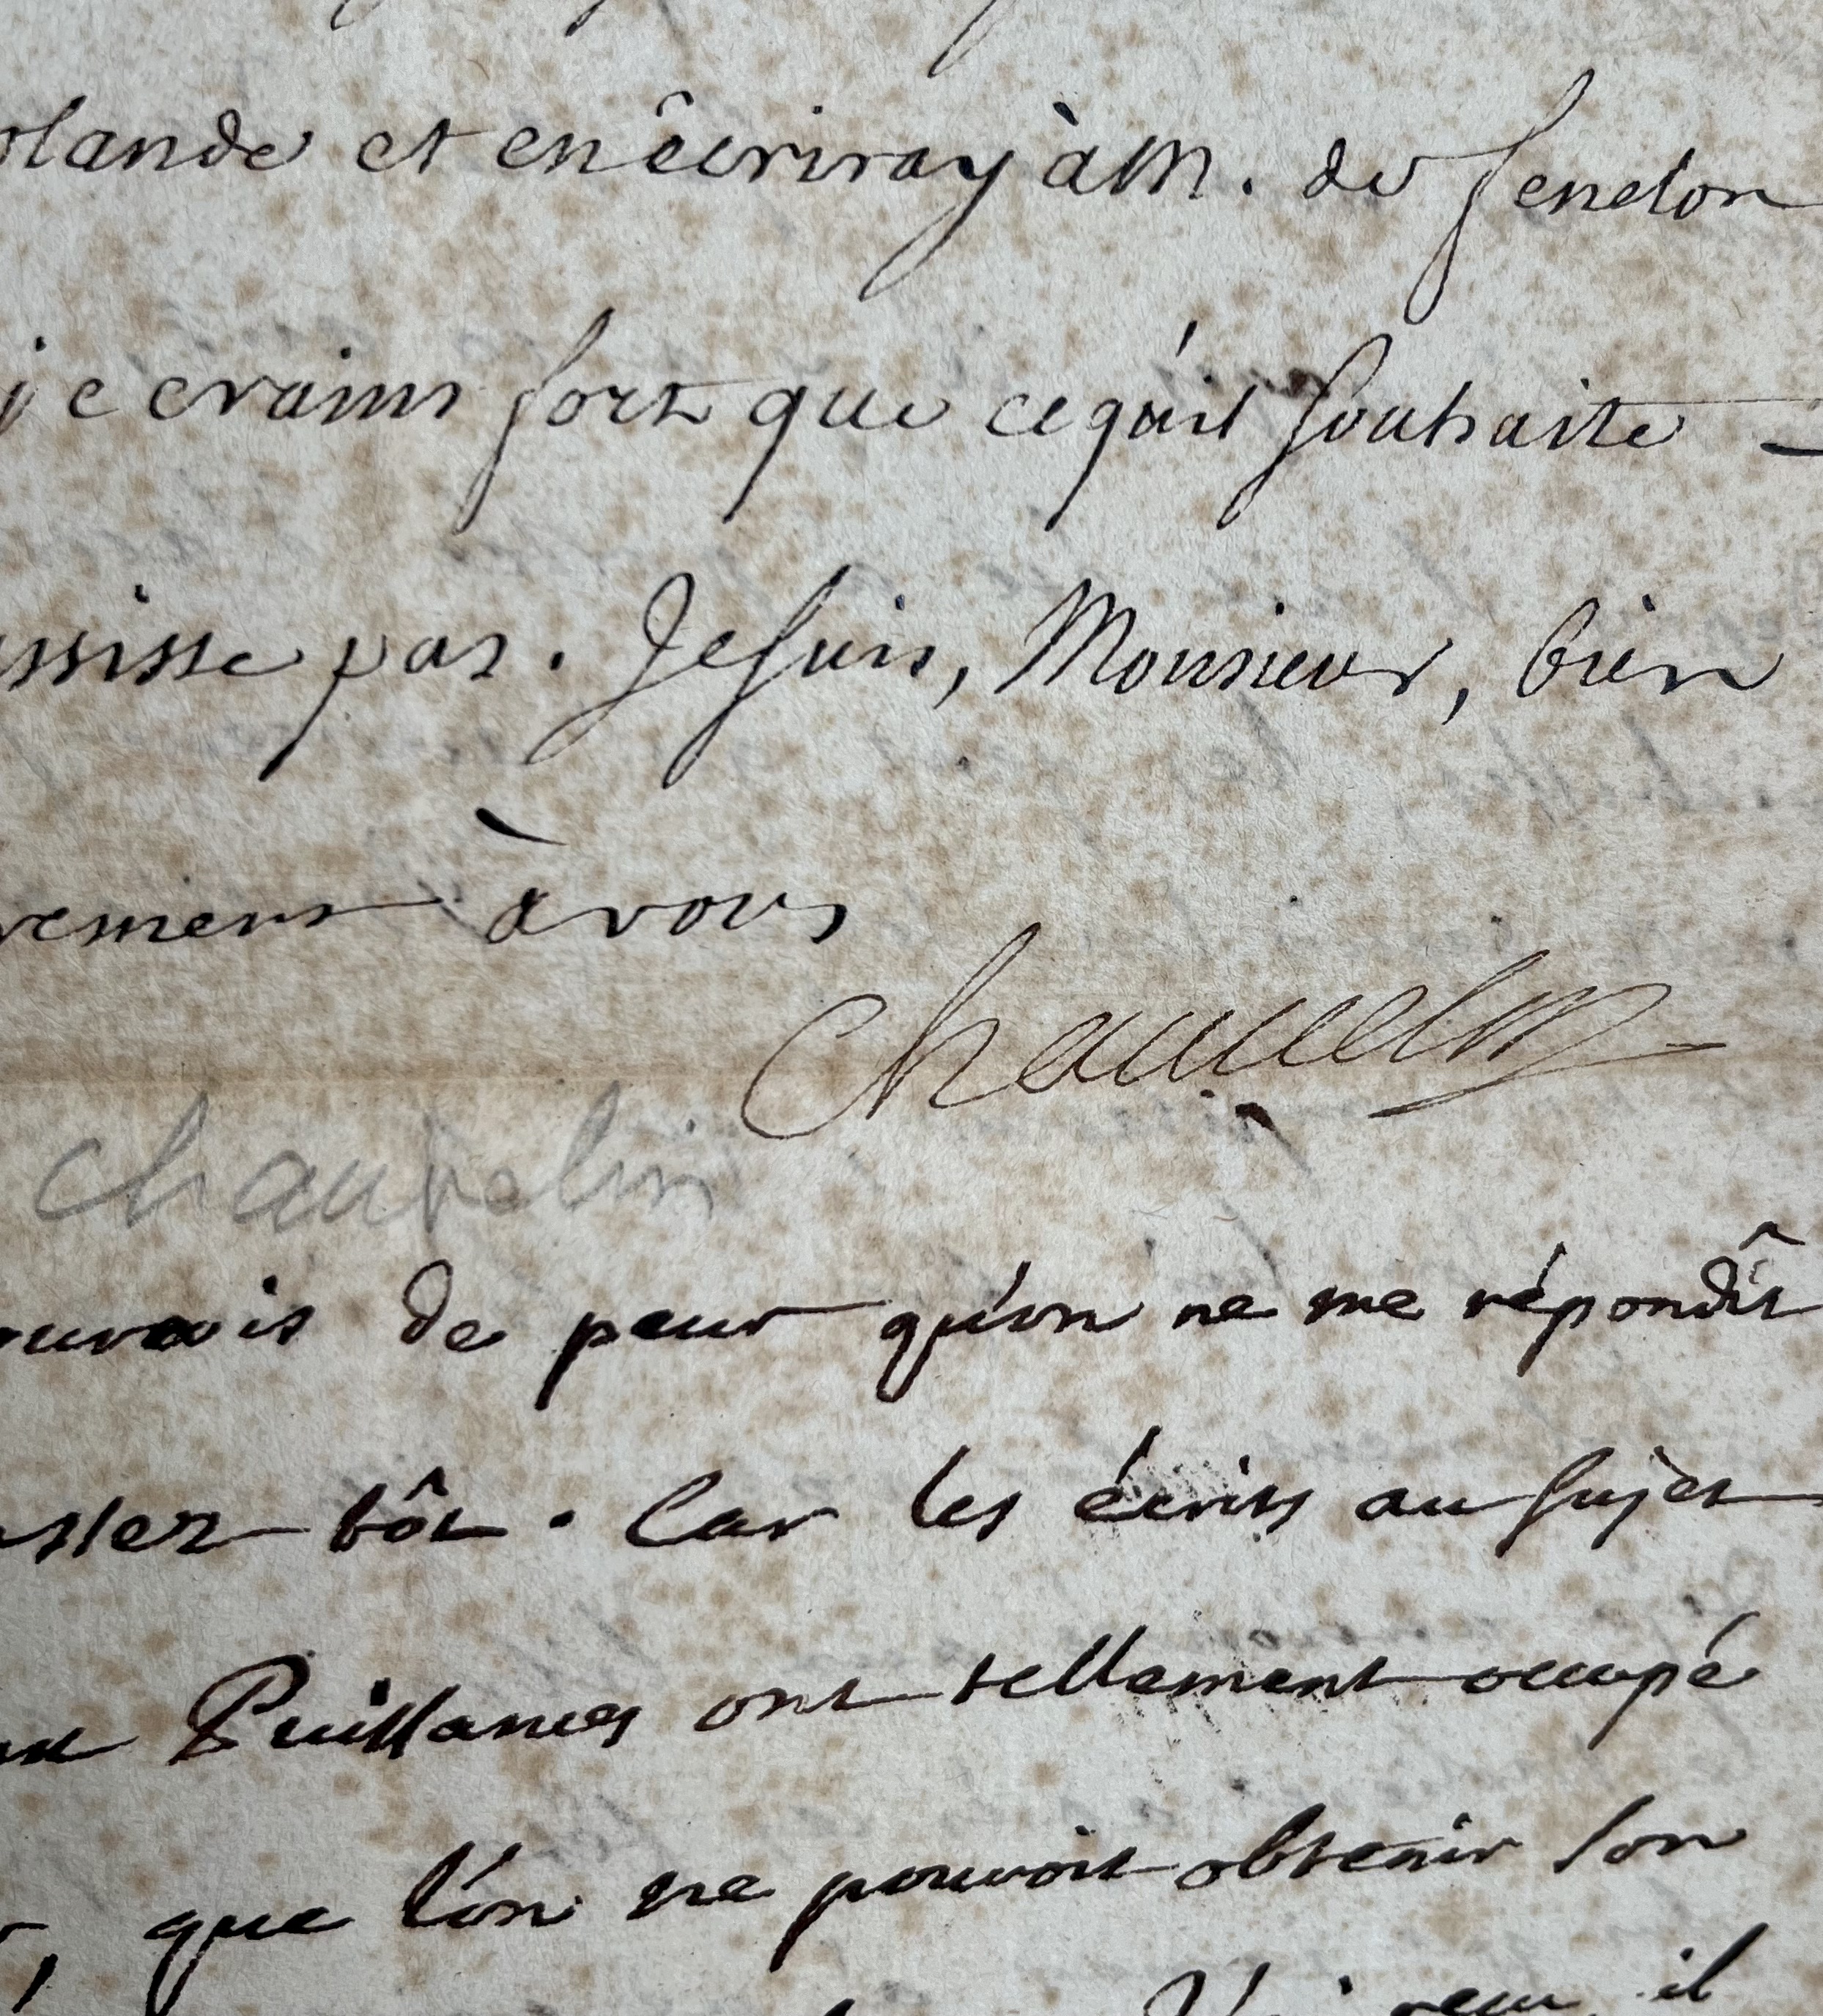 olande et en êcriray à M. de fenelon
je crains fort que ce qu'il souhaite -
ssisse pas. Je suis, Monsieur, bien
rement à vous
Chauvelin
Chauvelin
de peur qu'on ne me répondît
assez tôt. Car les écrits au sujet
Puissances ont tellement occupé
, que l'on ne pouvoit obtenir son
il